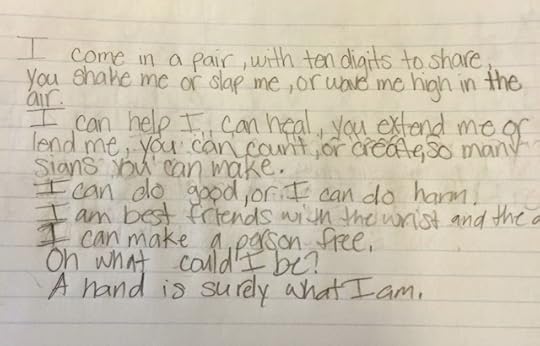 I come in a pair, with ten digits to share,
you shake me or slap me, or wave me high in the
air.
I can help I, can heal, you extend me or
lend me, you can count, or create, so many
signs you can make.
I can do good, or I can do harm.
I am best friends with the wrist and the
I can make a person free.
Oh what could I be?
A hand is surely what I am.